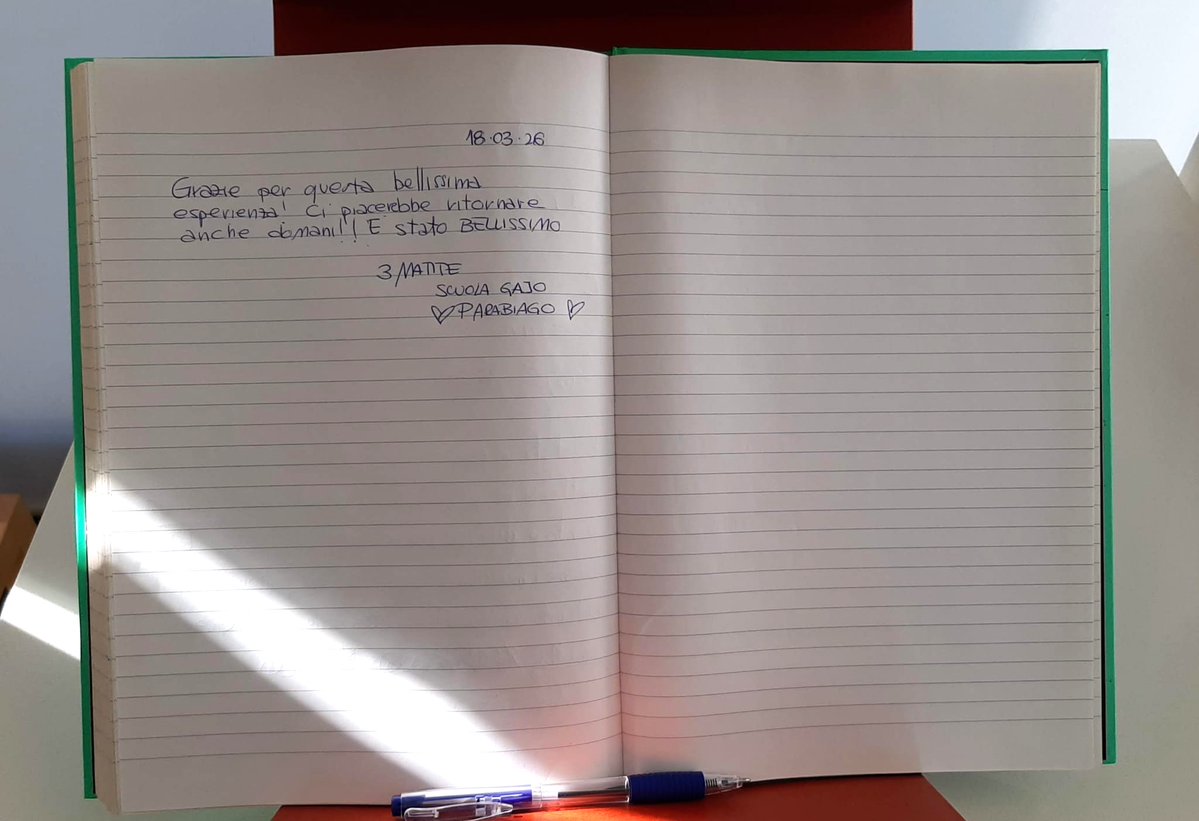 18.03.26
Grazie per questa bellissima
esperienza! Ci piacerebbe ritornare
anche domani!! E stato BELLISSIMO
3 MATITE
SCUOLA GAJO
PARABIAGO